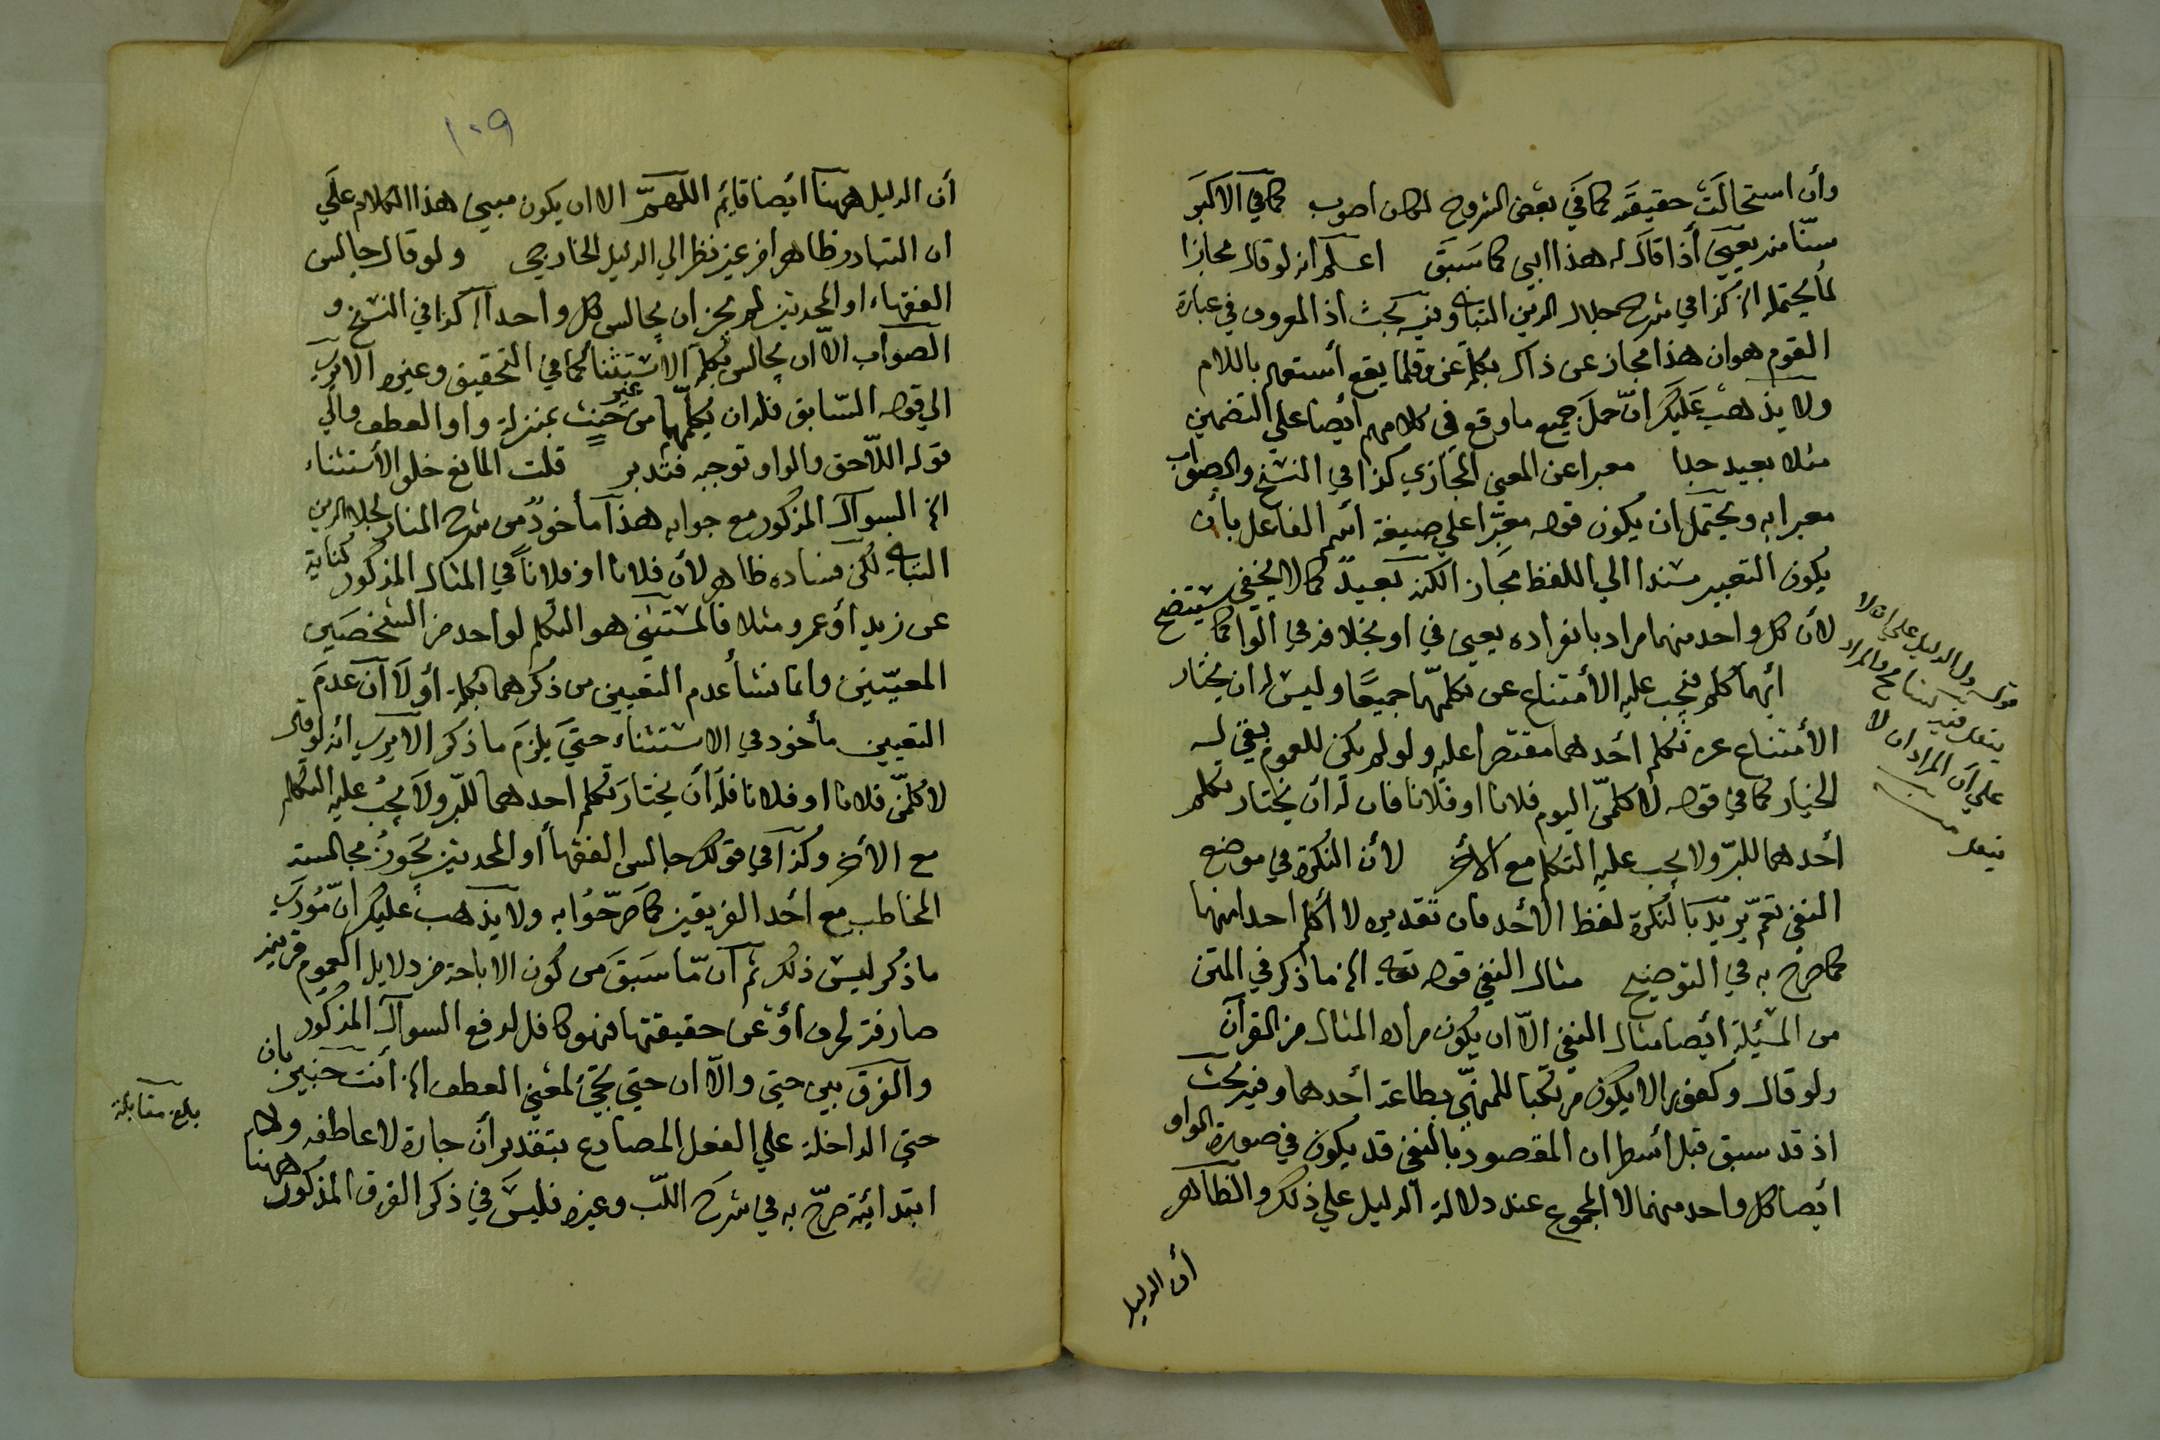 وأن استحالت حقيقته كما في بعض الشروح لكان اصوب كما في الاكبر
سنّا منه يعني أذا قال له هذا ابني كما سبق اعلم انه لو قال مجازا
لما يحتمله الخ كذا في شرح جلال الدين التباني وفيه بحث أذ المعروف في عبارة
القوم هو ان هذا مجاز عن ذاك بكلمة عن وقلما يقع أستعمله باللام
ولا يذهب عليك انّ حمل جميع ما وقع في كلامهم أيضا علي التضمين
مثلا بعيد جدا معبرا عن المعني المجازي كذا في النسخ والصواب
معبرا به ويحتمل ان يكون قوله معبّرا علي صيغة أسم الفاعل بأن
يكون التعبير مسندا الي اللفظ مجازا لكنه بعيدٌ كما لا يخفي
لأن كل واحد منهما مراد بانفراده يعني في او بخلافه في الواو كما سيتضح
أيهما كلم فيجب عليه الأمتناع عن تكلمهما جميعًا وليس له ان يختار
الأمتناع عن تكلم احدهما مقتصرا عليه ولو لم يكن للعموم بقي له
الخيار كما في قوله لأكلمنّ اليوم فلانا او فلانا فان له ان يختار تكلم
أحدهما للبرّ ولا يجب عليه التكلم مع الأخر لأن النكرة في موضع
النفي تعمّ يريد بالنكرة لفظ الأحد فان تقديره لا أكلم احدا منهما
كما صرح به في التوضيح مثال النفي قوله تعالي الخ ما ذكر في المتن
من المسئلة أيضا مثال النفي الاّ ان يكون مراده المثال من القرآن
ولو قال وكفورا لا يكون مرتكبا للمنهيّ بطاعة أحدهما وفيه بحث
اذ قد سبق قبل أسطر ان المقصود بالنفي قد يكون في صورة الواو
أيضا كل واحد منهما لا المجموع عند دلالة الدليل علي ذلك والظاهر
أن الدليل
قوله ول الدليل علي انه لا
علي أن المراد ان لا
١٠٩
أن الدليل ههنا أيضا قايم اللهمّ الا ان يكون مبني هذا الكلام علي
ان التبادر ظاهرا من غير نظر الي الدليل الخارجي ولو قال جالس
الفقهاء او المحدثين لم يجز ان يجالس كل واحد الخ كذا في النسخ و
الصواب الاّ ان يجالس بكلمة الاستثناء كما في التحقيق وغيره الا يرى
الي قوله السّابق فله ان يكلّمهما من غير حنث بمنزلة واو العطف والي
قوله اللاّحق والواو توجبه فتدبر قلت المانع خلو الأستثناء
الخ السوال المذكور مع جوابه هذا مأخوذٌ من شرح المنار لجلال الدين
التباني لكن فساده ظاهر لأن فلانا او فلاناً في المثال المذكور كناية
عن زيد أو عمرو مثلا فالمستثني هو التكلم لواحد من الشخصين
المعيّنين وانما نشأ عدم التعيين من ذكرهما بكلمة أو لاَ أن عدم
التعيين مأخوذ في الاستثناء حتي يلزم ما ذكر الا يرى انه لو قال
لأكلمنّ فلانا او فلانا فله أن يختار تكلم احدهما للبّر ولا يجب عليه التكلم
مع الأخر وكذا في قولك جالس الفقهأ أو المحدثين يجوز مجالسة
المخاطب مع أحد الفريقين كما صرّحوا به ولا يذهب عليك انّ مؤدى
ما ذكر ليس ذلك ثم أن مّا سبق من كون الاباحة من دلايل العموم قرينة
صارفة لحرف أو عن حقيقتها فهو كافل لدفع السوال المذكور
والفرق بين حتي والاّ ان حتي يجئ لمعني العطف الخ أنت خبير بان
حتي الداخلة علي الفعل المضارع بتقدير أن جارة لا عاطفه ولا
ابتدائية صرّح به في شرح اللبّ وغيره فليس في ذكر الفرق المذكور ههنا
بلغ مقابلة